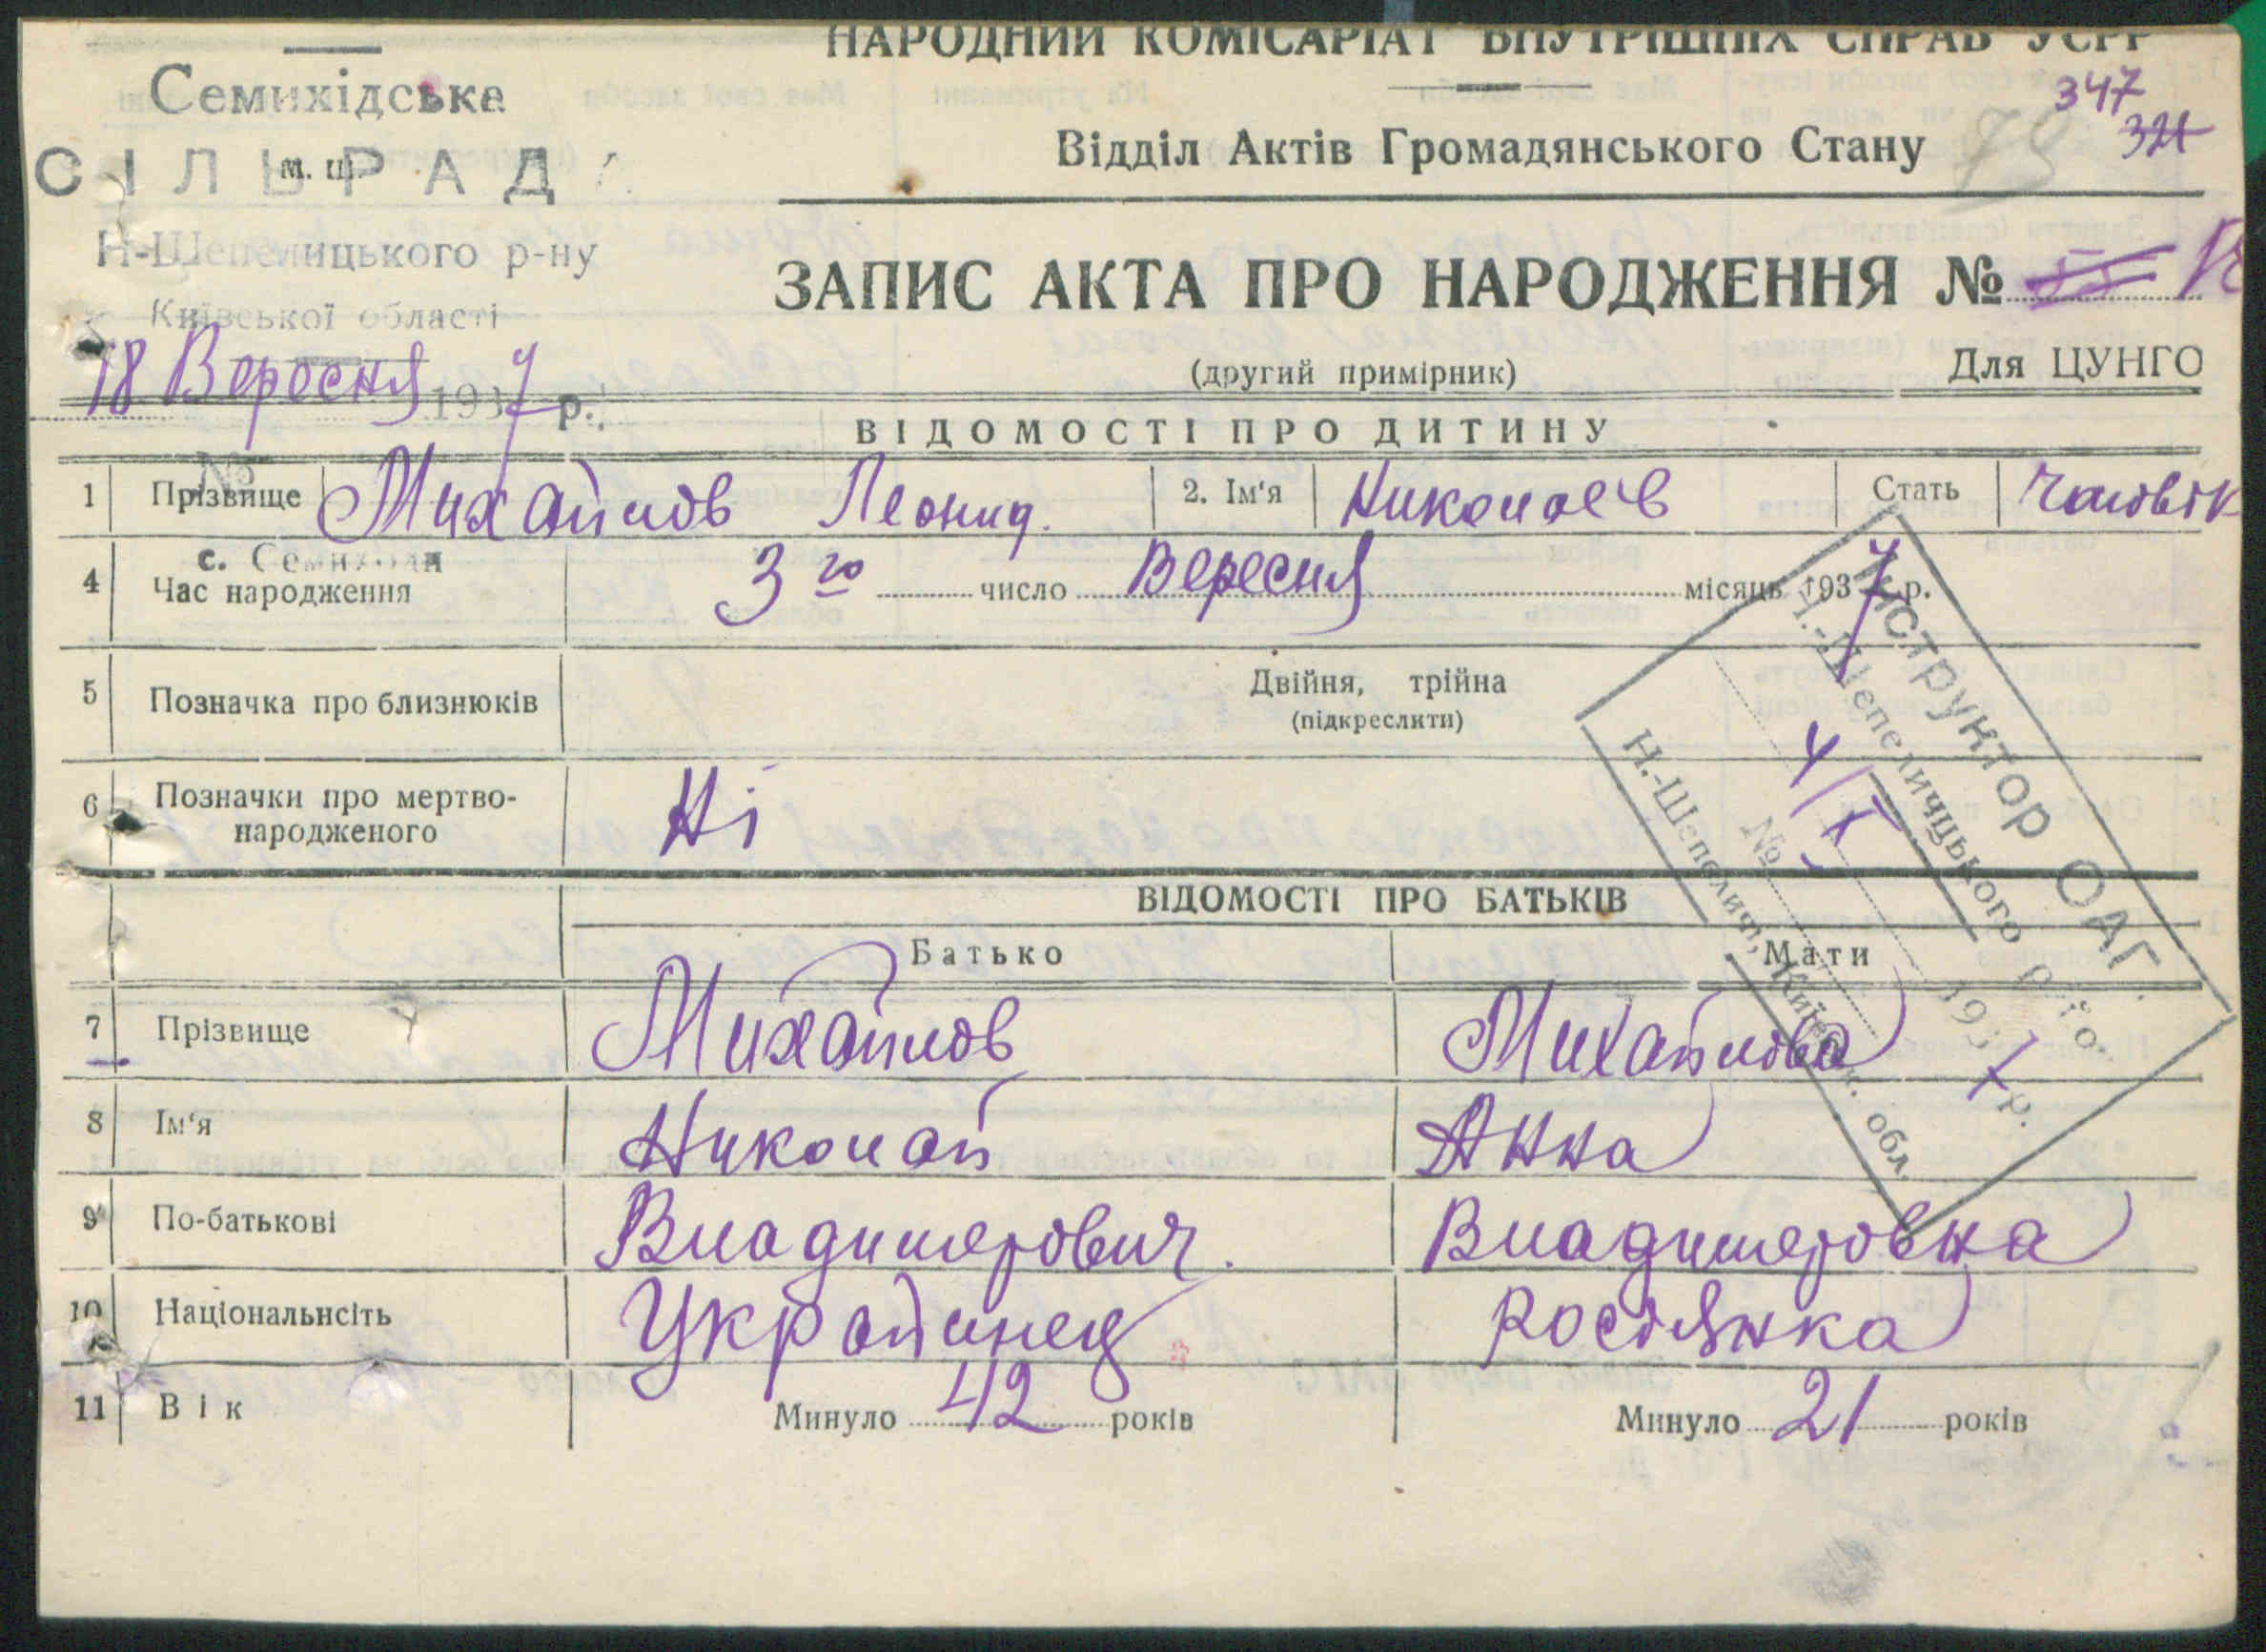 НАРОДНИЙ КОМІСАРІАТ ВНУТРІШНІХ СПРАВ УСРР
Семихідська
347
321
Відділ Актів Громадянського Стану
79
СІЛЬРАДА
м. ш.
Н-Шепелицького р-ну
ЗАПИС АКТА ПРО НАРОДЖЕННЯ №
Київської області
18 Вересня 1937 р.
(другий примірник)
Для ЦУНГО
ВІДОМОСТІ ПРО ДИТИНУ
№
1 Прізвище Михайлов Леонид. 2. Ім'я Николаев Стать Чоловік
с. Семиходи
4 Час народження 3го число Вересня місяць 1937 р.
5 Позначка про близнюків Двійня, трійна
(підкреслити)
6 Позначки про мертво-
народженого Ні
Інструктор ОАГ.
Н.-Шепеличцького р-ну.
4/X 1937 р.
№
Н.-Шепеличі, Київськ. обл.
ВІДОМОСТІ ПРО БАТЬКІВ
Батько Мати
7 Прізвище Михайлов Михайлова
8 Ім'я Николай Анна
9 По-батькові Владимерович. Владимеровна
10 Національнсіть Украйинец Росіянка
11 Вік Минуло 42 років Минуло 21 років